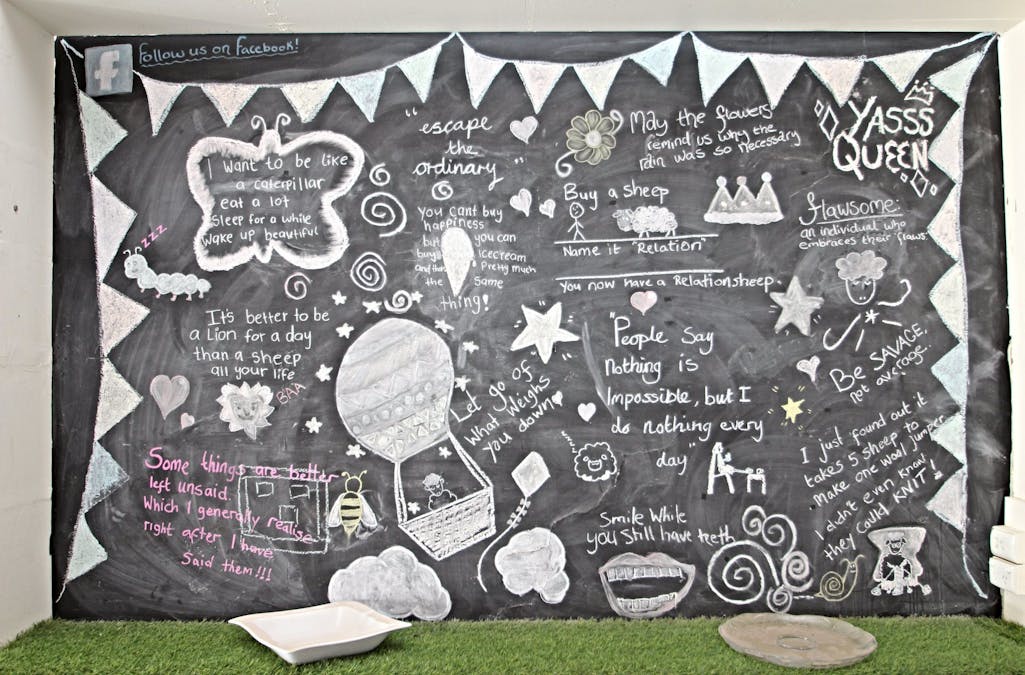 f
Follow us on Facebook!
I want to be like
a caterpillar
eat a lot
Sleep for a while
Wake up beautiful
zzz
"escape
the
ordinary"
You cant buy
happiness
but you can
buy icecream
and thats Pretty much
the same
thing!
May the flowers
remind us why the
rain was so necessary
YASSS
QUEEN
Buy a sheep
Name it "Relation"
You now have a Relationsheep.
flawsome:
an individual who
embraces their flaws.
It's better to be
a Lion for a day
than a sheep
all your life
BAA
Let go of
What Weighs
you down
"People Say
nothing is
Impossible, but I
do nothing every
day"
Be SAVAGE,
not average.
I just found out it
takes 5 sheep to
make one wool jumper
I didn't even know
they could KNIT!
Some things are better
left unsaid.
Which I generally realise
right after I have
Said them!!!
Smile While
you still have teeth